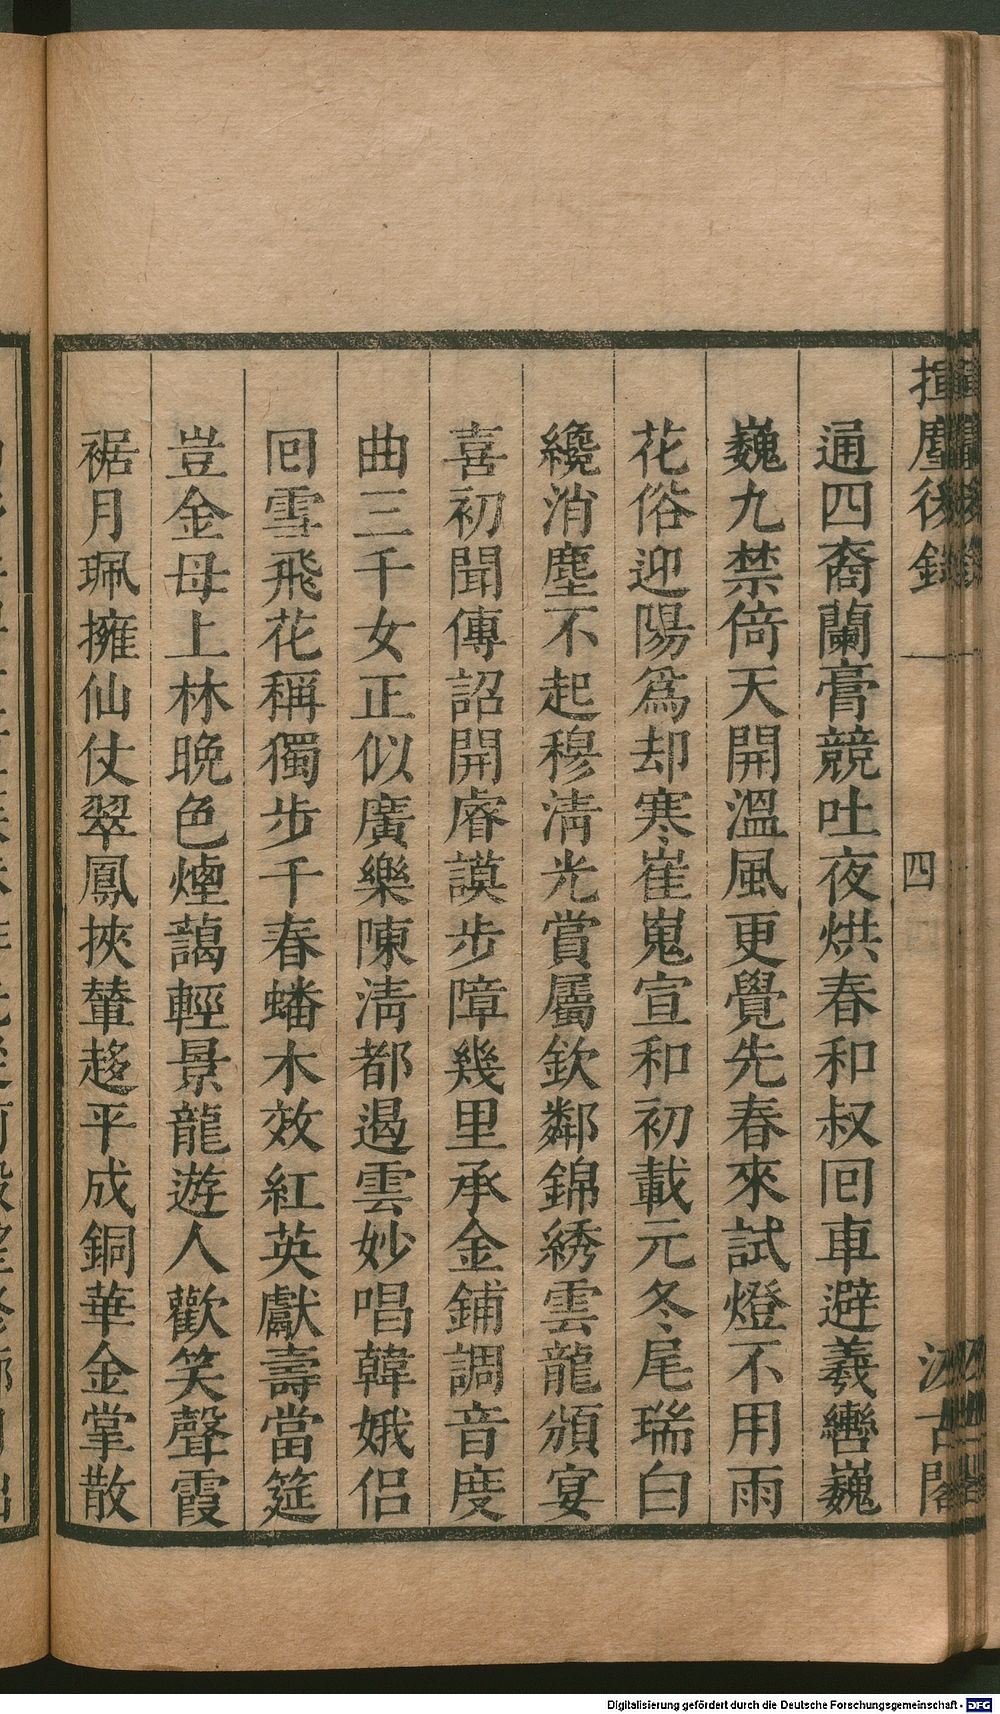 揮麈後錄
四
汲古閣
通四裔蘭膏競吐夜烘春和叔回車避羲轡巍
巍九禁倚天開溫風更覺先春來試燈不用雨
花俗迎陽爲却寒崔嵬宣和初載元冬尾瑞白
纔消塵不起穆淸光賞屬欽鄰錦綉雲龍頒宴
喜初聞傳詔開睿謨步障幾里承金鋪調音度
曲三千女正似廣樂陳淸都遏雲妙唱韓娥侣
回雪飛花稱獨步千春蟠木效紅英獻壽當筵
豈金母上林晚色煙藹輕景龍遊人歡笑聲霞
裾月珮擁仙仗翠鳳挾輦趍平成銅華金掌散
Digitalisierung gefördert durch die Deutsche Forschungsgemeinschaft - DFG